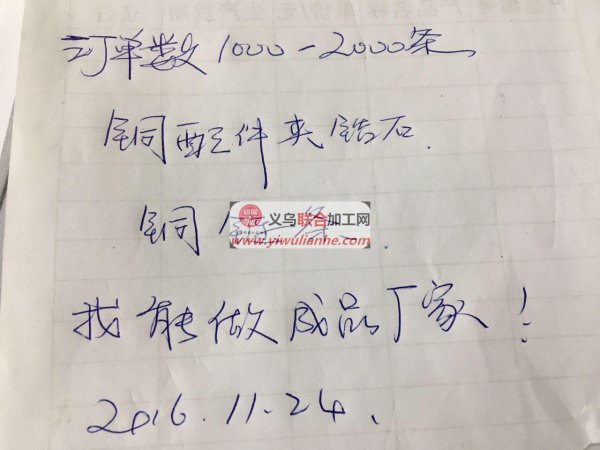 订单数1000-2000条
铜配件夹锆石.
铜
义乌联合加工网
www.yiwulianhe.com
找能做成品厂家!
2016.11.24.